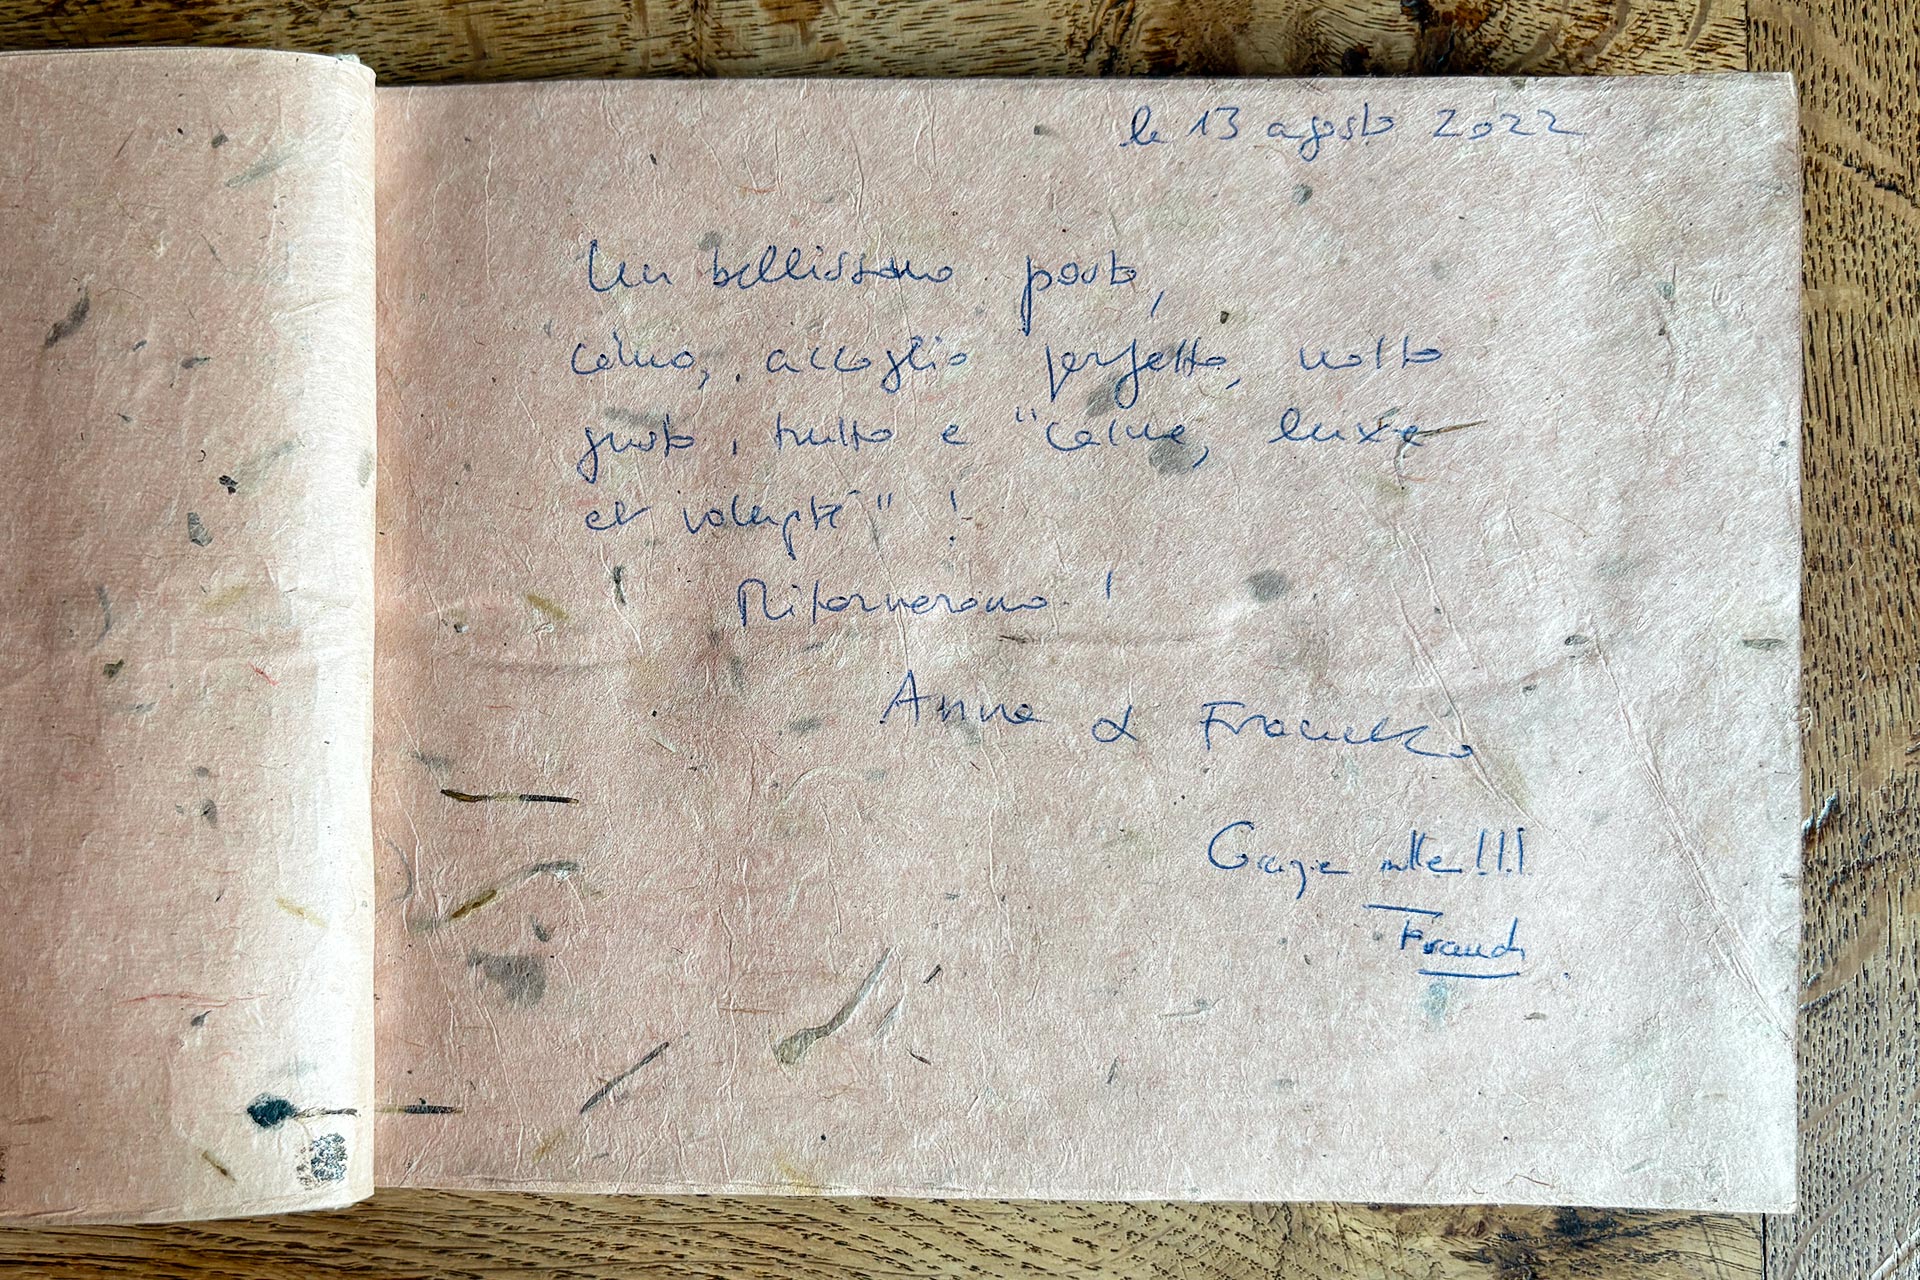 le 13 agosto 2022
Un bellissimo posto,
calmo, accoglio perfetto, molto
gusto, tutto e "calme, luxe
et volupté" !
Ritorneramo !
Anna & Francesco
Grazie mille!!!